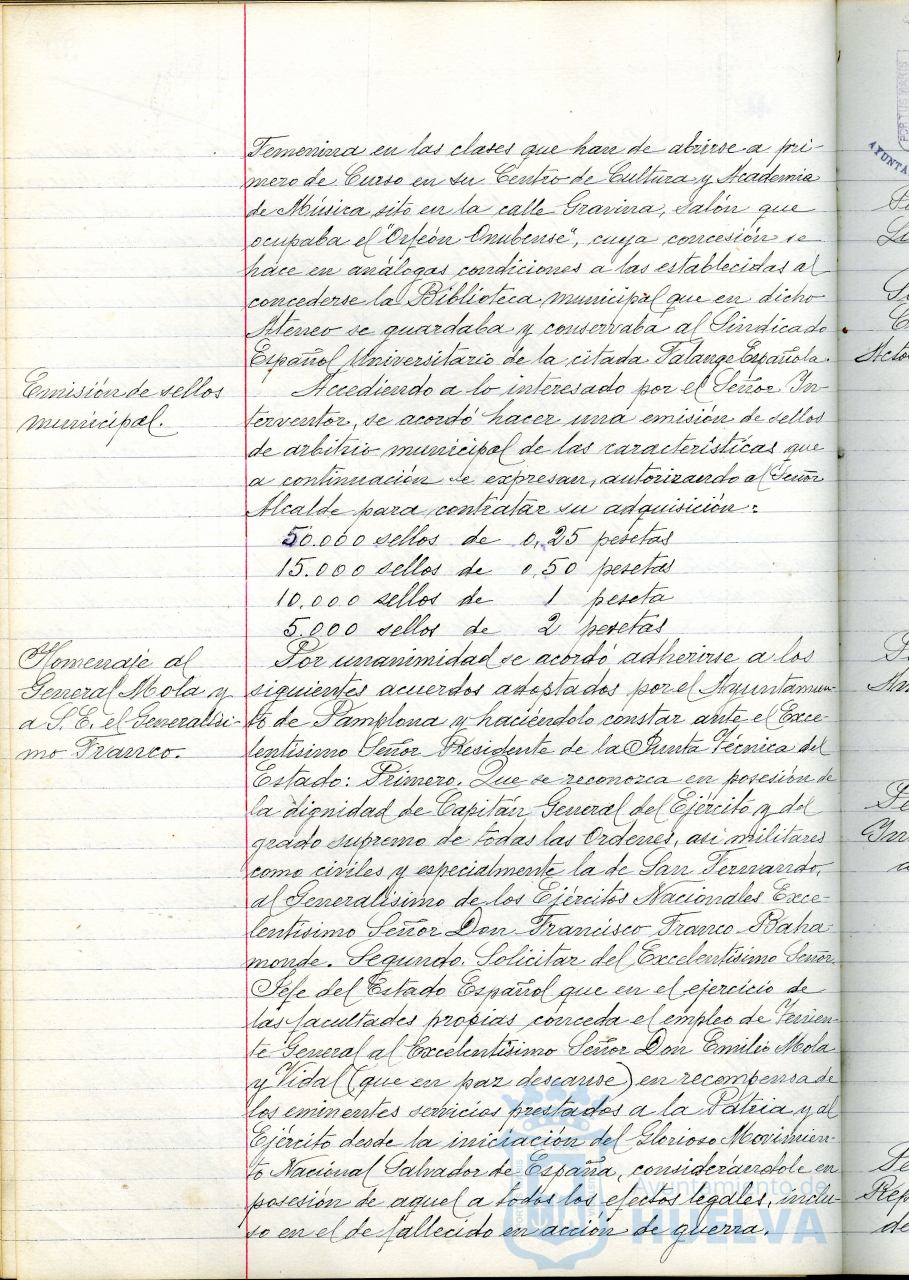 Femenina en las clases que han de abrirse a pri-
mero de Curso en su Centro de Cultura y Academia
de Música sito en la calle Gravina, salón que
ocupaba el "Orfeón Onubense", cuya concesión se
hace en análogas condiciones a las establecidas al
concederse la Biblioteca municipal que en dicho
Ateneo se guardaba y conservaba al Sindicado
Español Universitario de la citada Falange Española.
Emisión de sellos
municipal.
Accediendo a lo interesado por el Señor In-
terventor, se acordó hacer una emisión de sellos
de arbitrio municipal de las características que
a continuación se expresan, autorizando al Señor
Alcalde para contratar su adquisición:
50.000 sellos de 0,25 pesetas
15.000 sellos de 0,50 pesetas
10.000 sellos de 1 peseta
5.000 sellos de 2 pesetas
Homenaje al
General Mola y
a S.E. el Generalísi-
mo Franco.
Por unanimidad se acordó adherirse a los
siguientes acuerdos adoptados por el Ayuntamien-
to de Pamplona y haciéndolo constar ante el Exce-
lentísimo Señor Presidente de la Junta Técnica del
Estado: Primero. Que se reconozca en posesión de
la dignidad de Capitán General del Ejército y del
grado supremo de todas las Ordenes, así militares
como civiles, y especialmente la de San Fernando,
al Generalísimo de los Ejércitos Nacionales Exce-
lentísimo Señor Don Francisco Franco Baha-
monde. Segundo. Solicitar del Excelentísimo Señor
Jefe del Estado Español que en el ejercicio de
las facultades propias conceda el empleo de Tenien-
te General al Excelentísimo Señor Don Emilio Mola
y Vidal (que en paz descanse) en recompensa de
los eminentes servicios prestados a la Patria y al
Ejército desde la iniciación del Glorioso Movimien-
to Nacional Salvador de España, considerándole en
posesión de aquel a todos los efectos legales, inclu-
so en el de fallecido en acción de guerra.
Ayuntamiento de
HUELVA